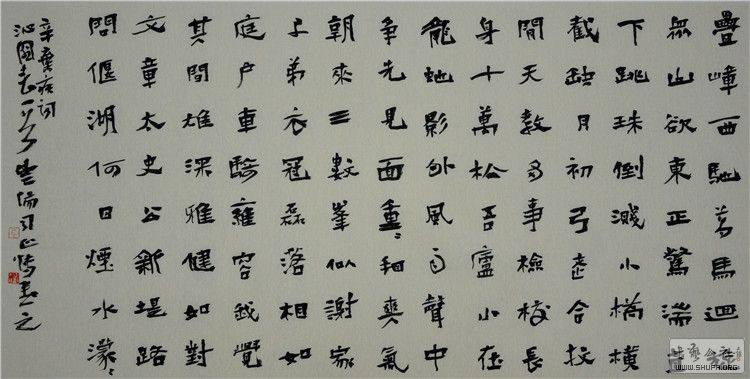 疊嶂西馳萬馬迴旋
眾山欲東正驚湍直
下跳珠倒濺小橋橫
截缺月初弓老合投
閒天教多事檢校長
身十萬松吾廬小在
龍蛇影外風雨聲中
爭先見面重〻看爽氣
朝來三數峯似謝家
子弟衣冠磊落相如
庭戶車騎雍容我覺
其間雄深雅健如對
文章太史公新堤路
問偃湖何日煙水濛〻
辛棄疾詞
沁園春一首
WWW.SHUFA.ORG